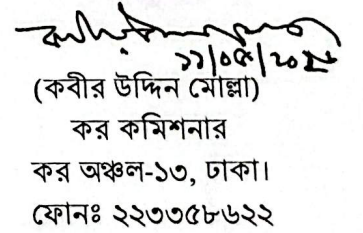 (কবীর উদ্দিন মোল্লা)
কর কমিশনার
কর অঞ্চল-১৩, ঢাকা।
ফোনঃ ২২৩৩৫৮৬২২